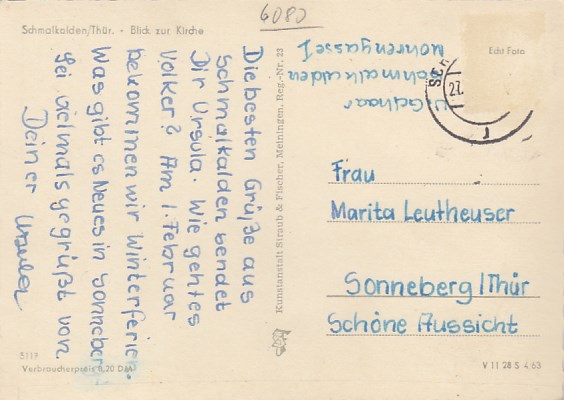 6080
Schmalkalden/Thür. · Blick zur Kirche
Echt Foto
Schmalkalden
Mohrengasse 1
27.
Die besten Grüße aus
Schmalkalden sendet
Dir Ursula. Wie geht es
Volker? Am 1. Februar
bekommen wir Winterferien.
Was gibt es Neues in Sonneberg
Sei vielmals gegrüßt von
Deiner Ursula
Kunstanstalt Straub & Fischer, Meiningen, Reg.-Nr. 23
Frau
Marita Leutheuser
Sonneberg/Thür
Schöne Aussicht
5119
Verbraucherpreis 0,20 DM
V 11 28 S 4 63